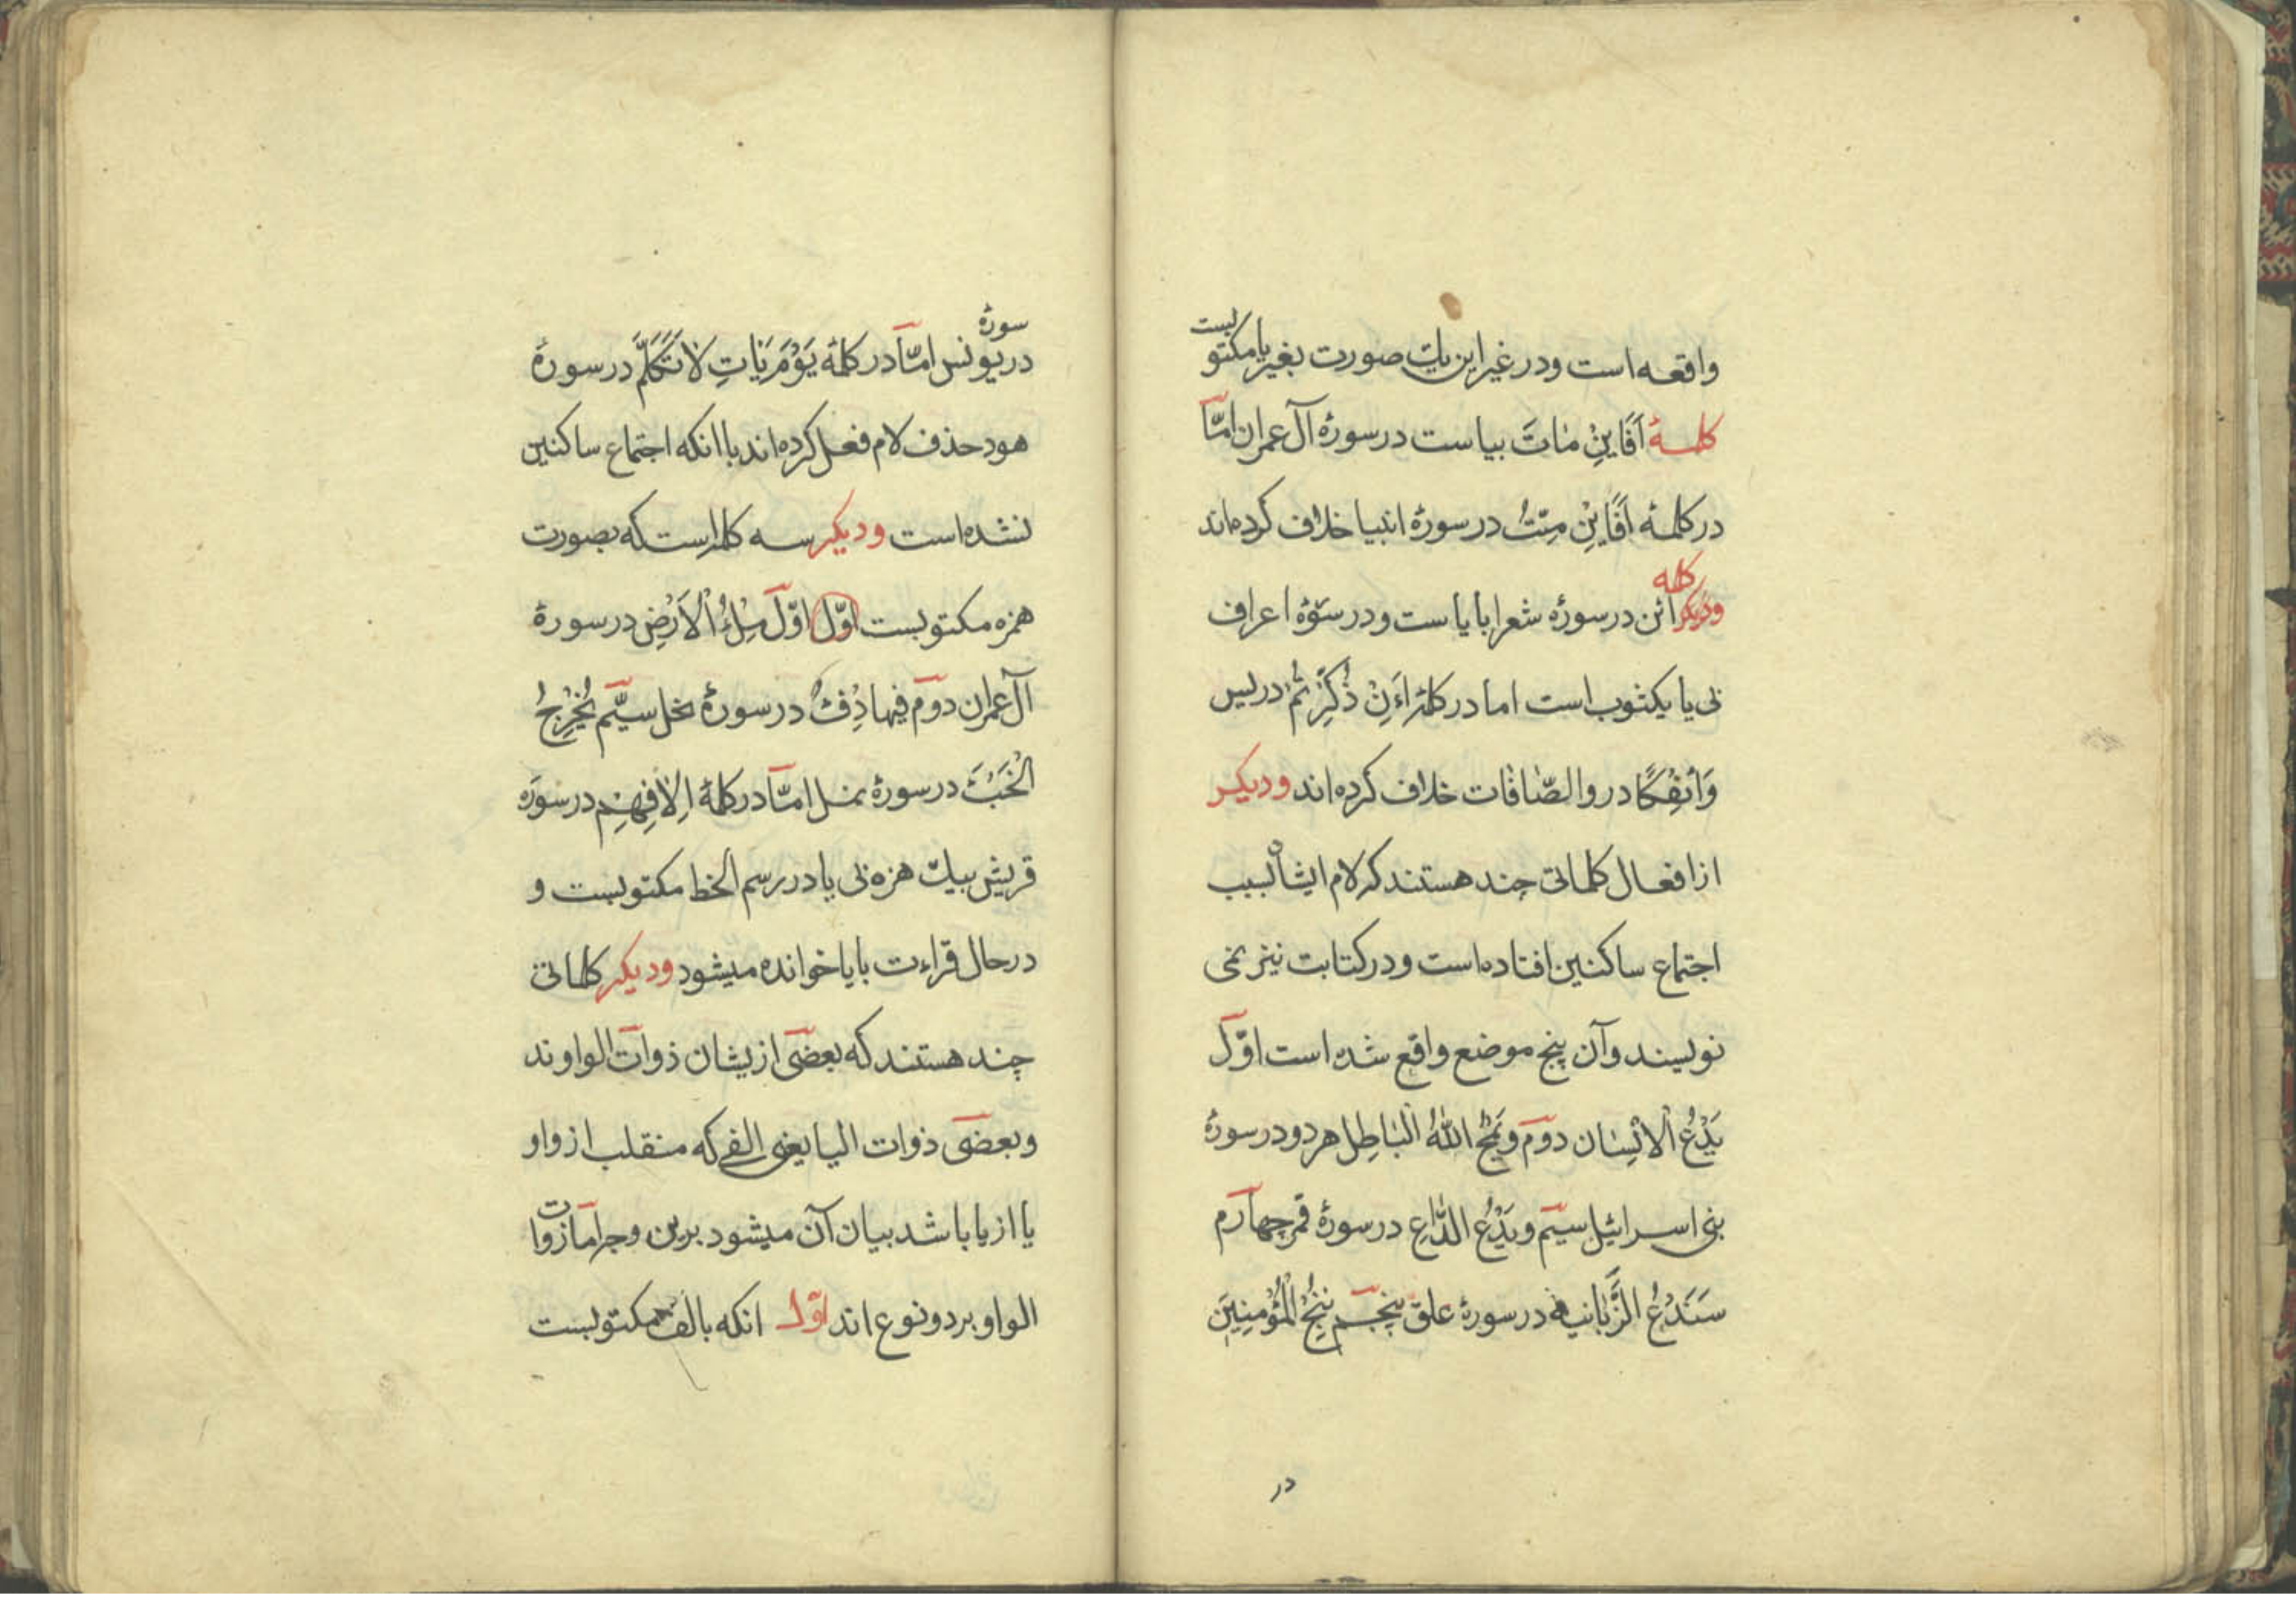 واقعه است ودر غیر این یك صورت بغیر یا مکتوبست
کلمهٔ اَفَایِنْ مٰاتَ بیاست در سورهٔ آل عمران امّا
در کلمهٔ اَفَایِنْ مِتّ در سورهٔ انبیا خلاف کرده‌اند
ودیکر کلمه ائن در سورهٔ شعرا بایاست ودر سورهٔ اعراف
بی یا یکثوب است اما در کلمهٔ اَءِنْ ذُکِّرْتُمْ در یس
وَائِفْکًا در والصّٰافّٰات خلاف کرده‌اند ودیکر
از افعال کلماتی چند هستند که لام ایشان بسبب
اجتماع ساکنین افتاده‌است ودر کتابت نیز نمی
نویسند وآن پنج موضع واقع شده است اوّل
یَدْعُ الْاِنْسٰان دوّم ویَمْحُ اللّٰهُ الْبٰاطِل هردو در سورهٔ
بنی اسرائیل سیّم ویَدْعُ الدّٰاعِ در سورهٔ قمر چهارم
سَنَدْعُ الزَّبٰانیه در سورهٔ علق پنجم نُنْجِ الْمُؤْمِنِینَ
در
در سورهٔ یونس امّا در کلمهٔ یَوْمَ یَاتِ لاٰ تَکَلَّمُ در سورهٔ
هود حذف لام فعل کرده‌اند باانکه اجتماع ساکنین
نشده‌است ودیکر سه کلمه‌است که بصورت
همزه مکتوبست اوّل اوّل مِلْءُ الْاَرْضِ در سورهٔ
آل عمران دوّم فیها دِفْءٌ در سورهٔ نحل سیّم یُخْرِجُ
الْخَبْءَ در سورهٔ نمل امّا در کلمهٔ اِلاٰفِهِمْ در سورهٔ
قریش بیك همزه بی یا در رسم الخط مکتوبست و
در حال قراءت بایا خوانده میشود ودیکر کلماتی
چند هستند که بعضی ازیشان ذوات الواوند
وبعضی ذوات الیا یعنی الفی که منقلب از واو
یا از یا باشد بیان آن میشود برین وجه اما ذوات
الواو بر دو نوع اند اوّل انکه بالف مکتوبست